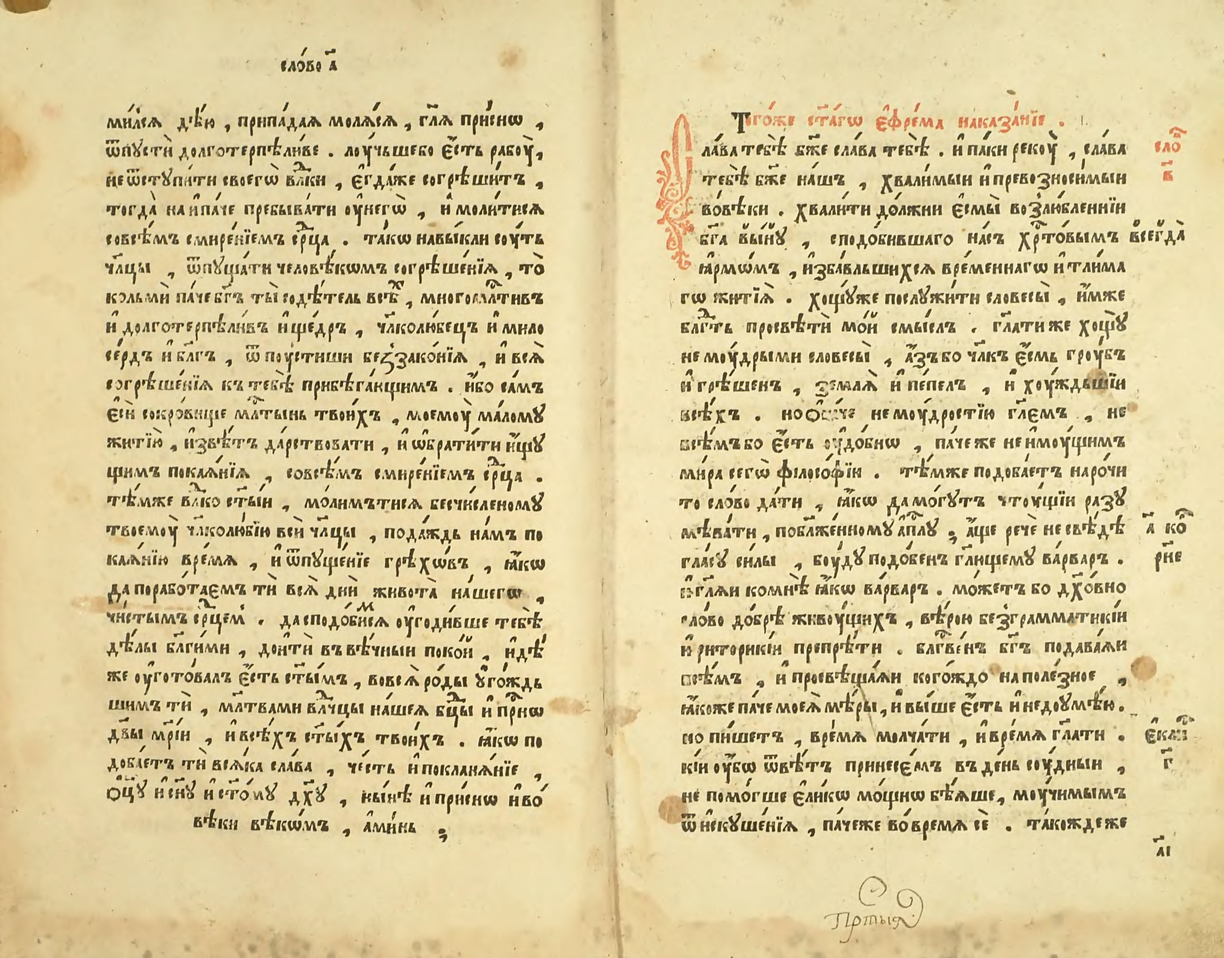 сло́во а҃
ми́лсѧ дѣ́ю , припа́даѧ молѧ́сѧ , гл҃ѧ при́снѡ ,
ѿпꙋстѝ долготерпѣ́ливе . лоу́чьшебо є҆́сть рабоу̀ ,
не ѿстꙋпи́ти своегѡ̀ влⷣки , є҆гда́же согрѣши́тъ ,
тогда̀ наипа́че пребыва́ти оу҆негѡ̀ , и҆ моли́тисѧ
совсѣ́мъ смире́нїемъ срⷣца . та́кѡ навы́кли соу́ть
чл҃цы , ѿпꙋща́ти человѣ́кѡмъ согрѣше́нїѧ , то̀
кольмѝ па́че бг҃ъ ты̀ содѣ́тель всѣ́х , многомлⷭ҇тивъ
и҆ долготерпѣли́въ и҆ ще́дръ , чл҃колю́бецъ и҆ мило
се́рдъ и҆ бл҃гъ , ѿпоу́стиши беззако́нїѧ , и҆ всѧ̀
согрѣше́нїѧ к тебѣ̀ прибѣга́ющимъ . и҆́бо са́мъ
є҆сѝ сокро́вище млⷭ҇тынь твои́хъ , моемоу̀ ма́ломꙋ
житїю̀ , и҆звѣ́тъ да́рствовати , и҆ ѡ҆брати́ти и҆́щꙋ
щимъ покаѧ́нїѧ , совсѣ́мъ смире́нїемъ срⷣца .
тѣ́мже влⷣко ст҃ы́и , мо́лимътисѧ бесчи́сленомꙋ
твоемоу̀ чл҃колю́бїю всѝ чл҃цы , пода́ждь на́мъ по
каѧ́нїю вре́мѧ , и҆ ѿпꙋще́нїе грѣхѡ́въ , ꙗ҆́кѡ
да порабо́таемъ ти всѧ̀ дни̑ живота̀ на́шегѡ ,
чи́стымъ срⷣцем . да сподо́бимсѧ оу҆годи́вше тебѣ̀
дѣ́лы бл҃ги́ми , доитѝ въ вѣ́чныи поко́й , и҆дѣ́
же оу҆гото́валъ є҆́сть ст҃ы́мъ , во всѧ̀ ро́ды ᲂу҆гождь
шимъ тѝ , мл҃твами влⷣчцы на́шеѧ бц҃ы и҆ прⷭ҇нѡ
дв҃ы мр҃їи , и҆ всѣ́хъ ст҃ы́хъ твои́хъ . ꙗ҆́кѡ по
доба́етъ тѝ всѧ́ка сла́ва , че́сть и҆ поклана́нїе ,
ѻ҆ц҃ꙋ и҆ сн҃ꙋ и҆ ст҃о́мꙋ дх҃ꙋ , ны́нѣ и҆ при́снѡ и҆ во
вѣ́ки вѣкѡ́мъ , а҆ми́нь ;
Того́же ст҃а́гѡ є҆фре́ма наказа́нїе .
сло́
в҃
Сла́ва тебѣ̀ бж҃е сла́ва тебѣ̀ . и҆ па́ки рекоу̀ , сла́ва
тебѣ̀ бж҃е на́шъ , хвали́мыи и҆ превозноси́мыи
во вѣ́ки . хвали́ти до́лжни є҆смы̀ возлю́бленнїи
бг҃а вы́нꙋ , сподо́бившаго на́съ хрⷭ҇то́вымъ
всегда̀
ꙗ҆рмѡ́мъ , и҆зба́вльшихсѧ вре́меннагѡ и҆ тлима
гѡ житїѧ̀ . хощꙋ́же послꙋжи́ти словесы̀ , и҆́мже
блг҃ть просвѣтѝ мо́й смы́слъ . гл҃ати же хощꙋ̀
не моу́дрыми словесы̀ , а҆́зъ бо чл҃къ є҆́смь гроу́бъ
и҆ грѣ́шенъ , землѧ̀ и҆ пе́пелъ , и҆ хоу́ждьшїи
всѣ́хъ . но не моу́дростїю гл҃емъ , не
всѣ́мъ бо є҆́сть оу҆до́бнѡ , па́че же не и҆моу́щимъ
ми́ра сегѡ̀ фїлосо́фїи . тѣ́мже подоба́етъ наро́чи
то сло́во да́ти , ꙗ҆́кѡ да мо́гꙋтъ чтоу́щїи разꙋ
мѣва́ти , поблаже́нномꙋ а҆пⷭ҇лꙋ ; а҆́ще речѐ не свѣ́дѣ
а҃ ко́
рнѳ
гла́сꙋ си́лы , боу́дꙋ подо́бен гл҃ющемꙋ ва́рвар .
и҆ гл҃ѧи ко мнѣ̀ ꙗ҆́кѡ ва́рвар . мо́жетъ бо дх҃о́вно
сло́во до́брѣ живоу́щихъ , вѣ́рою без грамматикі́и
и҆ риторикі́и препрѣ́ти . блгⷭ҇ве́нъ бг҃ъ подава́ѧи
всѣ́мъ , и҆ просвѣща́ѧи когождо на поле́зное ,
ꙗ҆́коже па́че моеѧ̀ мѣ́ры , и҆ вы́ше є҆́сть и҆ недоꙋмѣ́ю .
но пи́шетъ , вре́мѧ молча́ти , и҆ вре́мѧ гл҃ати .
є҆кли
г҃
кі́и оу҆́бѡ ѿвѣ́тъ принесе́мъ въ де́нь соу́дныи ,
не помо́гше є҆ли́кѡ мо́щнѡ бѣ́ѧше , моу́чимымъ
ѿ и҆скꙋше́нїѧ , па́че же во вре́мѧ сѐ . та́кожде же
а҃і